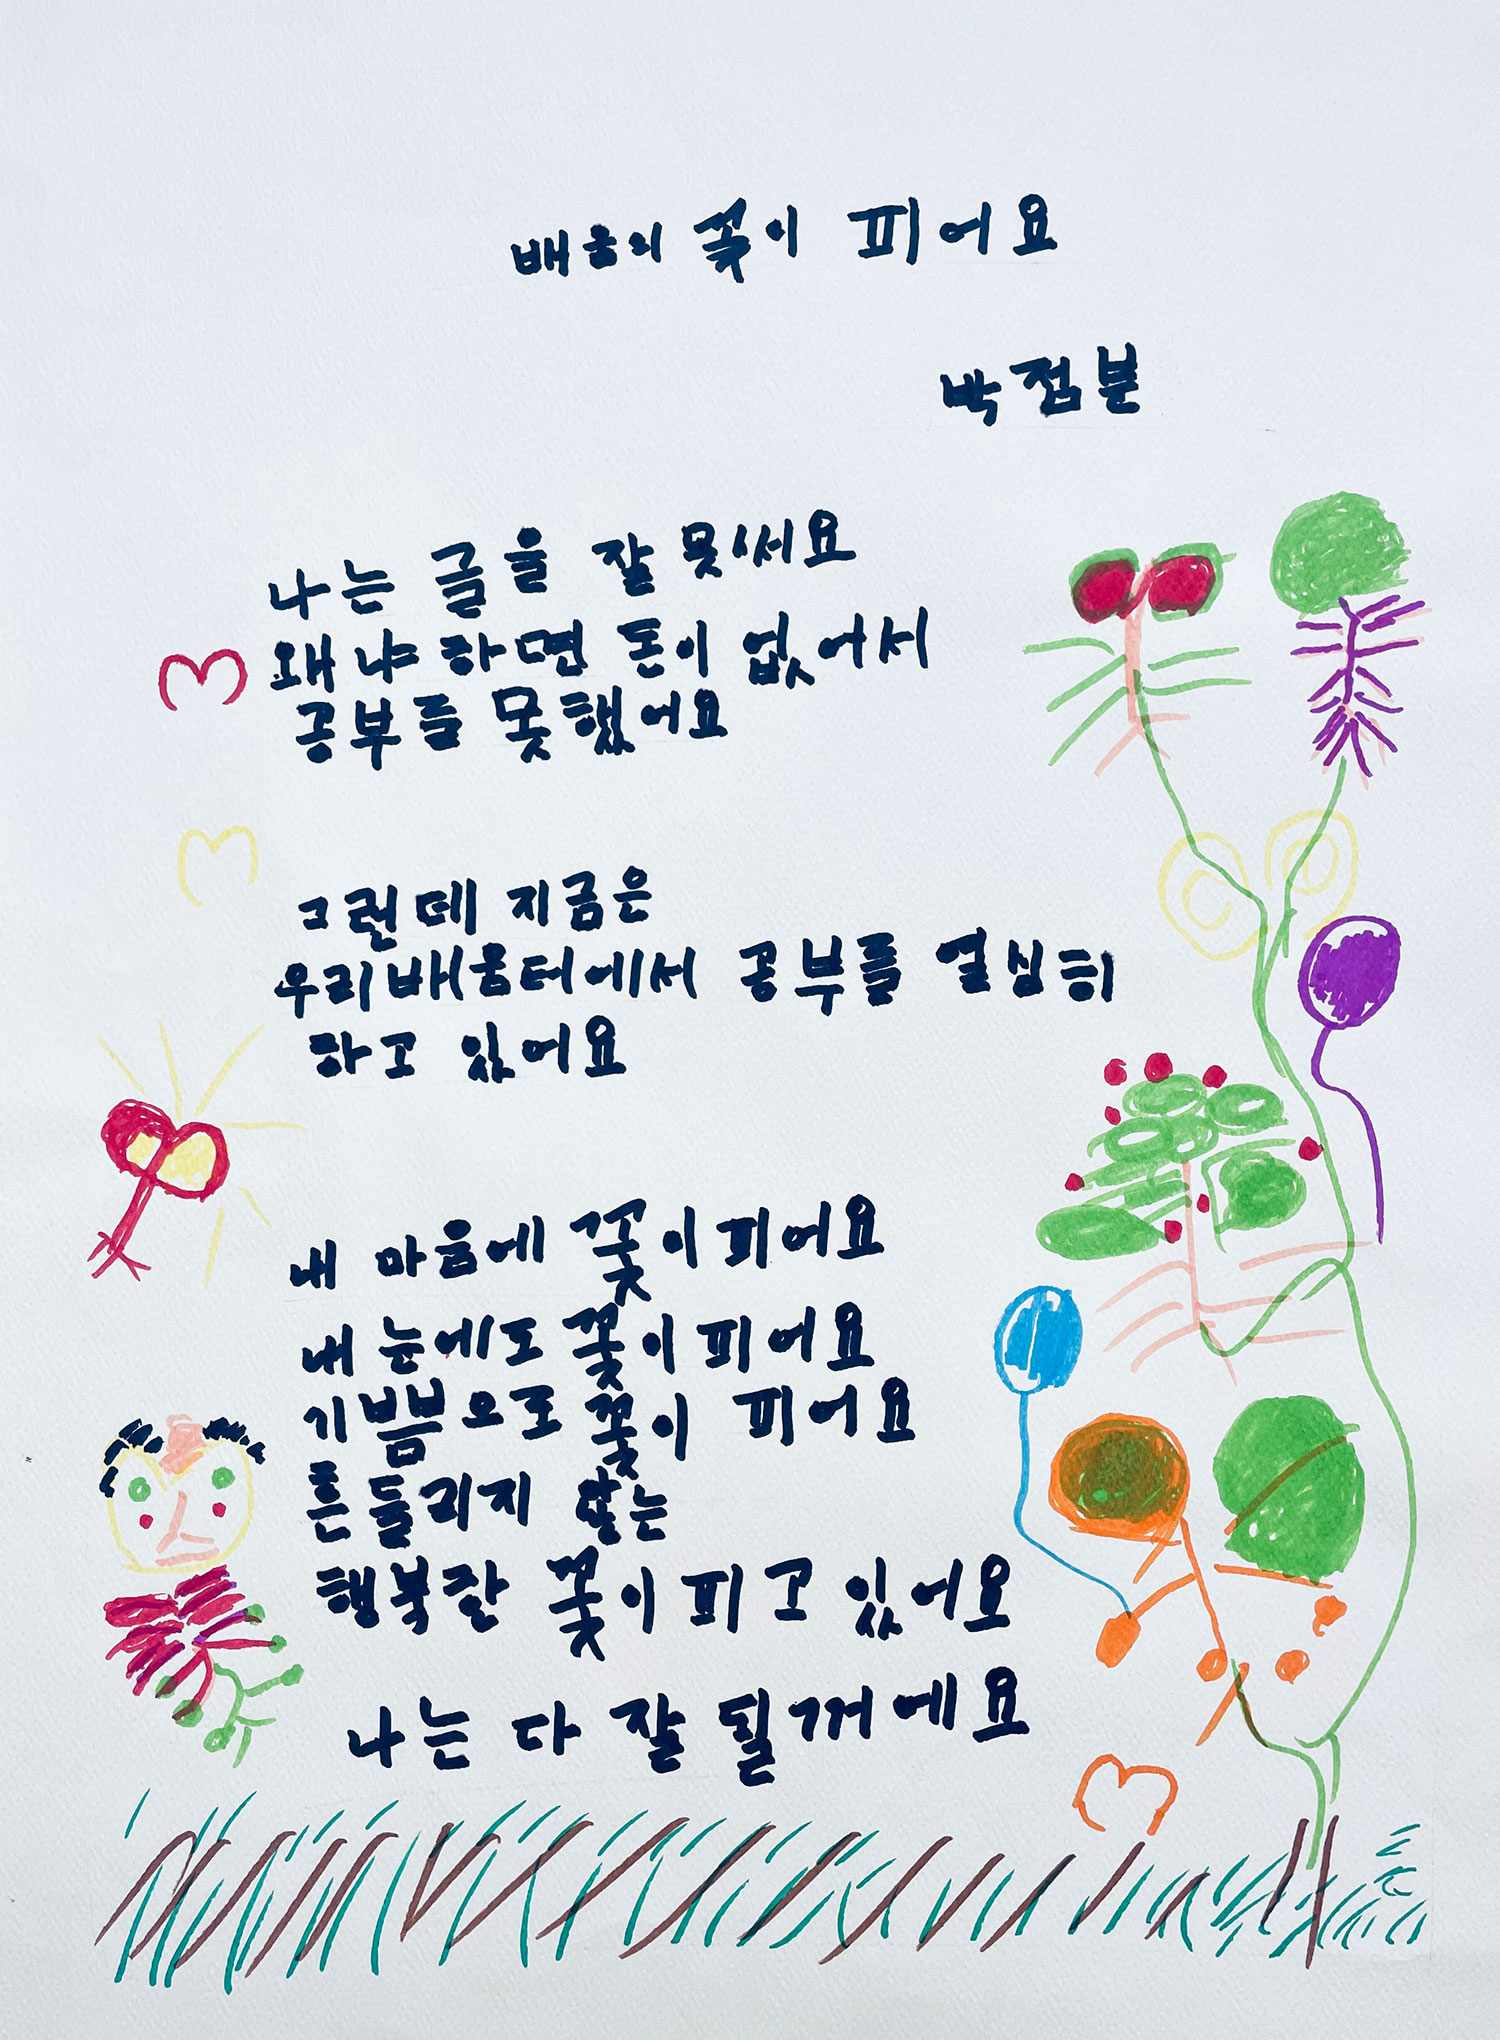 배움의 꽃이 피어요
박점분
나는 글을 잘 못써요
왜냐하면 돈이 없어서
공부를 못했어요
그런데 지금은
우리배움터에서 공부를 열심히
하고 있어요
내 마음에 꽃이피어요
내 눈에도 꽃이피어요
기쁨으로 꽃이 피어요
흔들리지 않는
행복한 꽃이피고있어요
나는 다 잘 될꺼에요